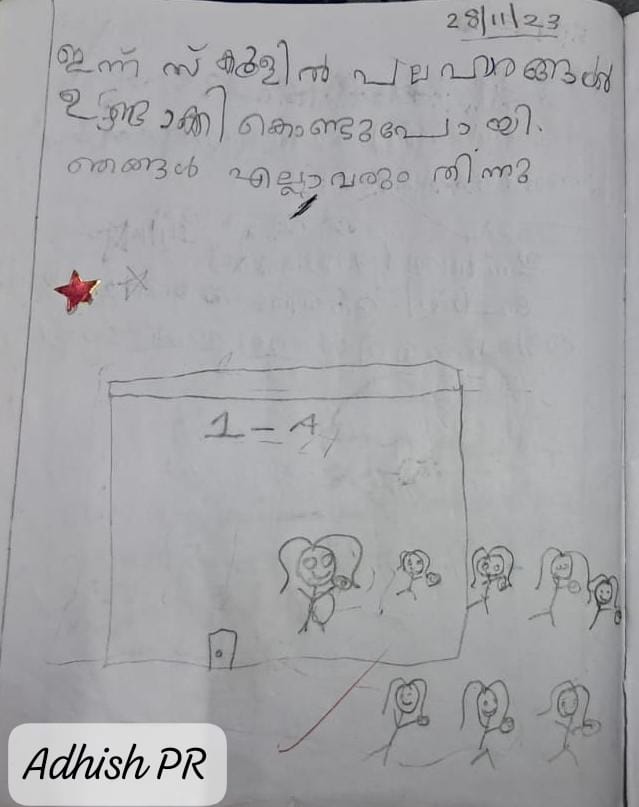 28/11/23
ഇന്ന് സ്കൂളിൽ പലഹാരങ്ങൾ
ഉണ്ടാക്കി കൊണ്ടുപോയി.
ഞങ്ങൾ എല്ലാവരും തിന്നു
1 - A
Adhish PR